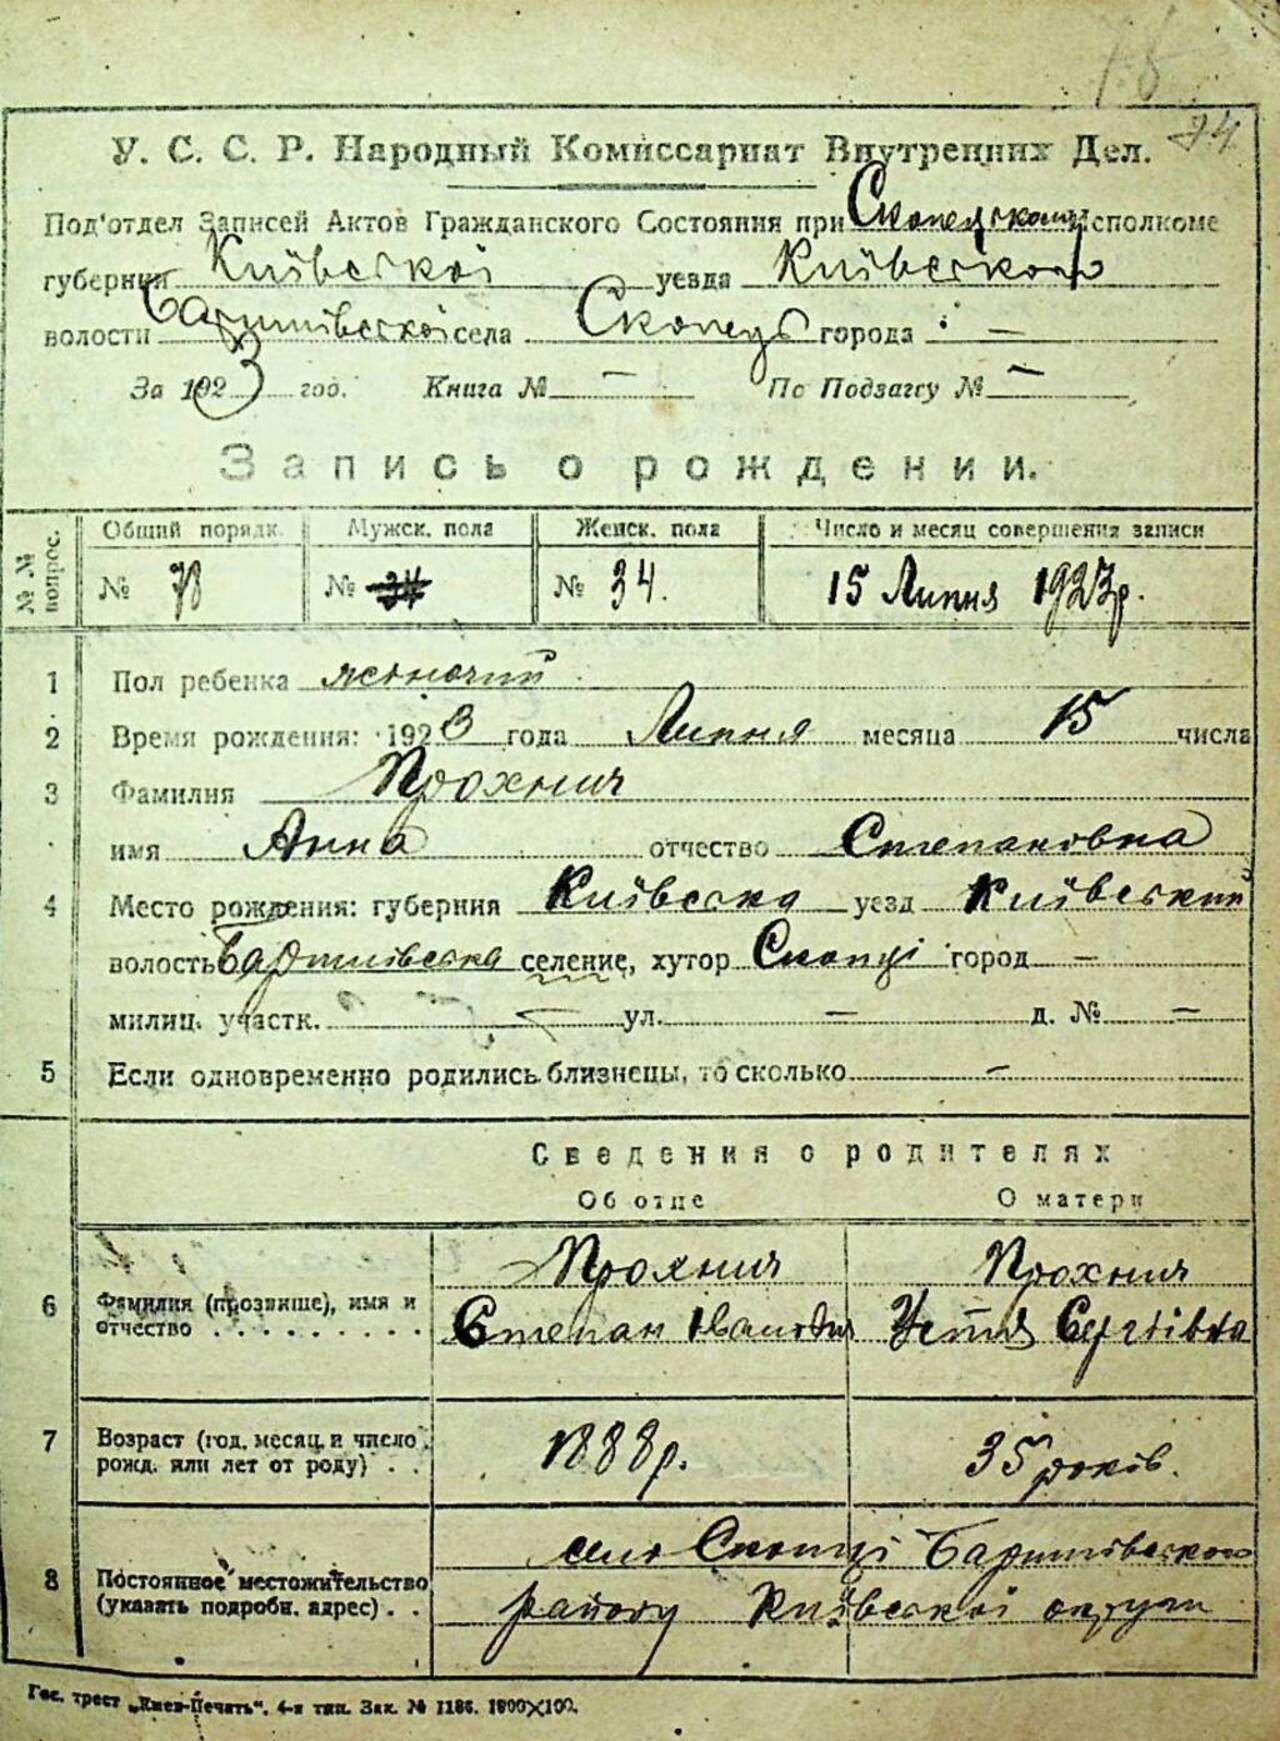 74
У. С. С. Р. Народный Комиссариат Внутренних Дел.
Под'отдел Записей Актов Гражданского Состояния при Скопецком исполкоме
губернии Київської уезда Київського
волости Баришівської села Скопець города —
За 1923 год. Книга № — По Подзагсу № —
Запись о рождении.
№ № вопрос. Общий порядк. Мужск. пола Женск. пола Число и месяц совершения записи
№ 78 № 34 № 34. 15 Липня 1923 р.
1 Пол ребенка жіночий
2 Время рождения: 1923 года Липня месяца 15 числа
3 Фамилия Прохнич
имя Анна отчество Степановна
4 Место рождения: губерния Київська уезд Київський
волость Баришівська селение, хутор Скопці город —
милиц. участк. — ул. — д. № —
5 Если одновременно родились близнецы, то сколько —
Сведения о родителях
Об отце О матери
Прохнич Прохнич
6 Фамилия (прозвище), имя и
отчество . . . . . . . . . . Степан Іванович Устя Сергіівна
7 Возраст (год, месяц и число
рожд. или лет от роду) . . 1888 р. 35 років.
село Скопці Баришівського
8 Постоянное местожительство
(указать подробн. адрес) . . району Київської округи
Гос. трест „Киев-Печать“. 4-я тип. Зак. № 1186. 1800×100.